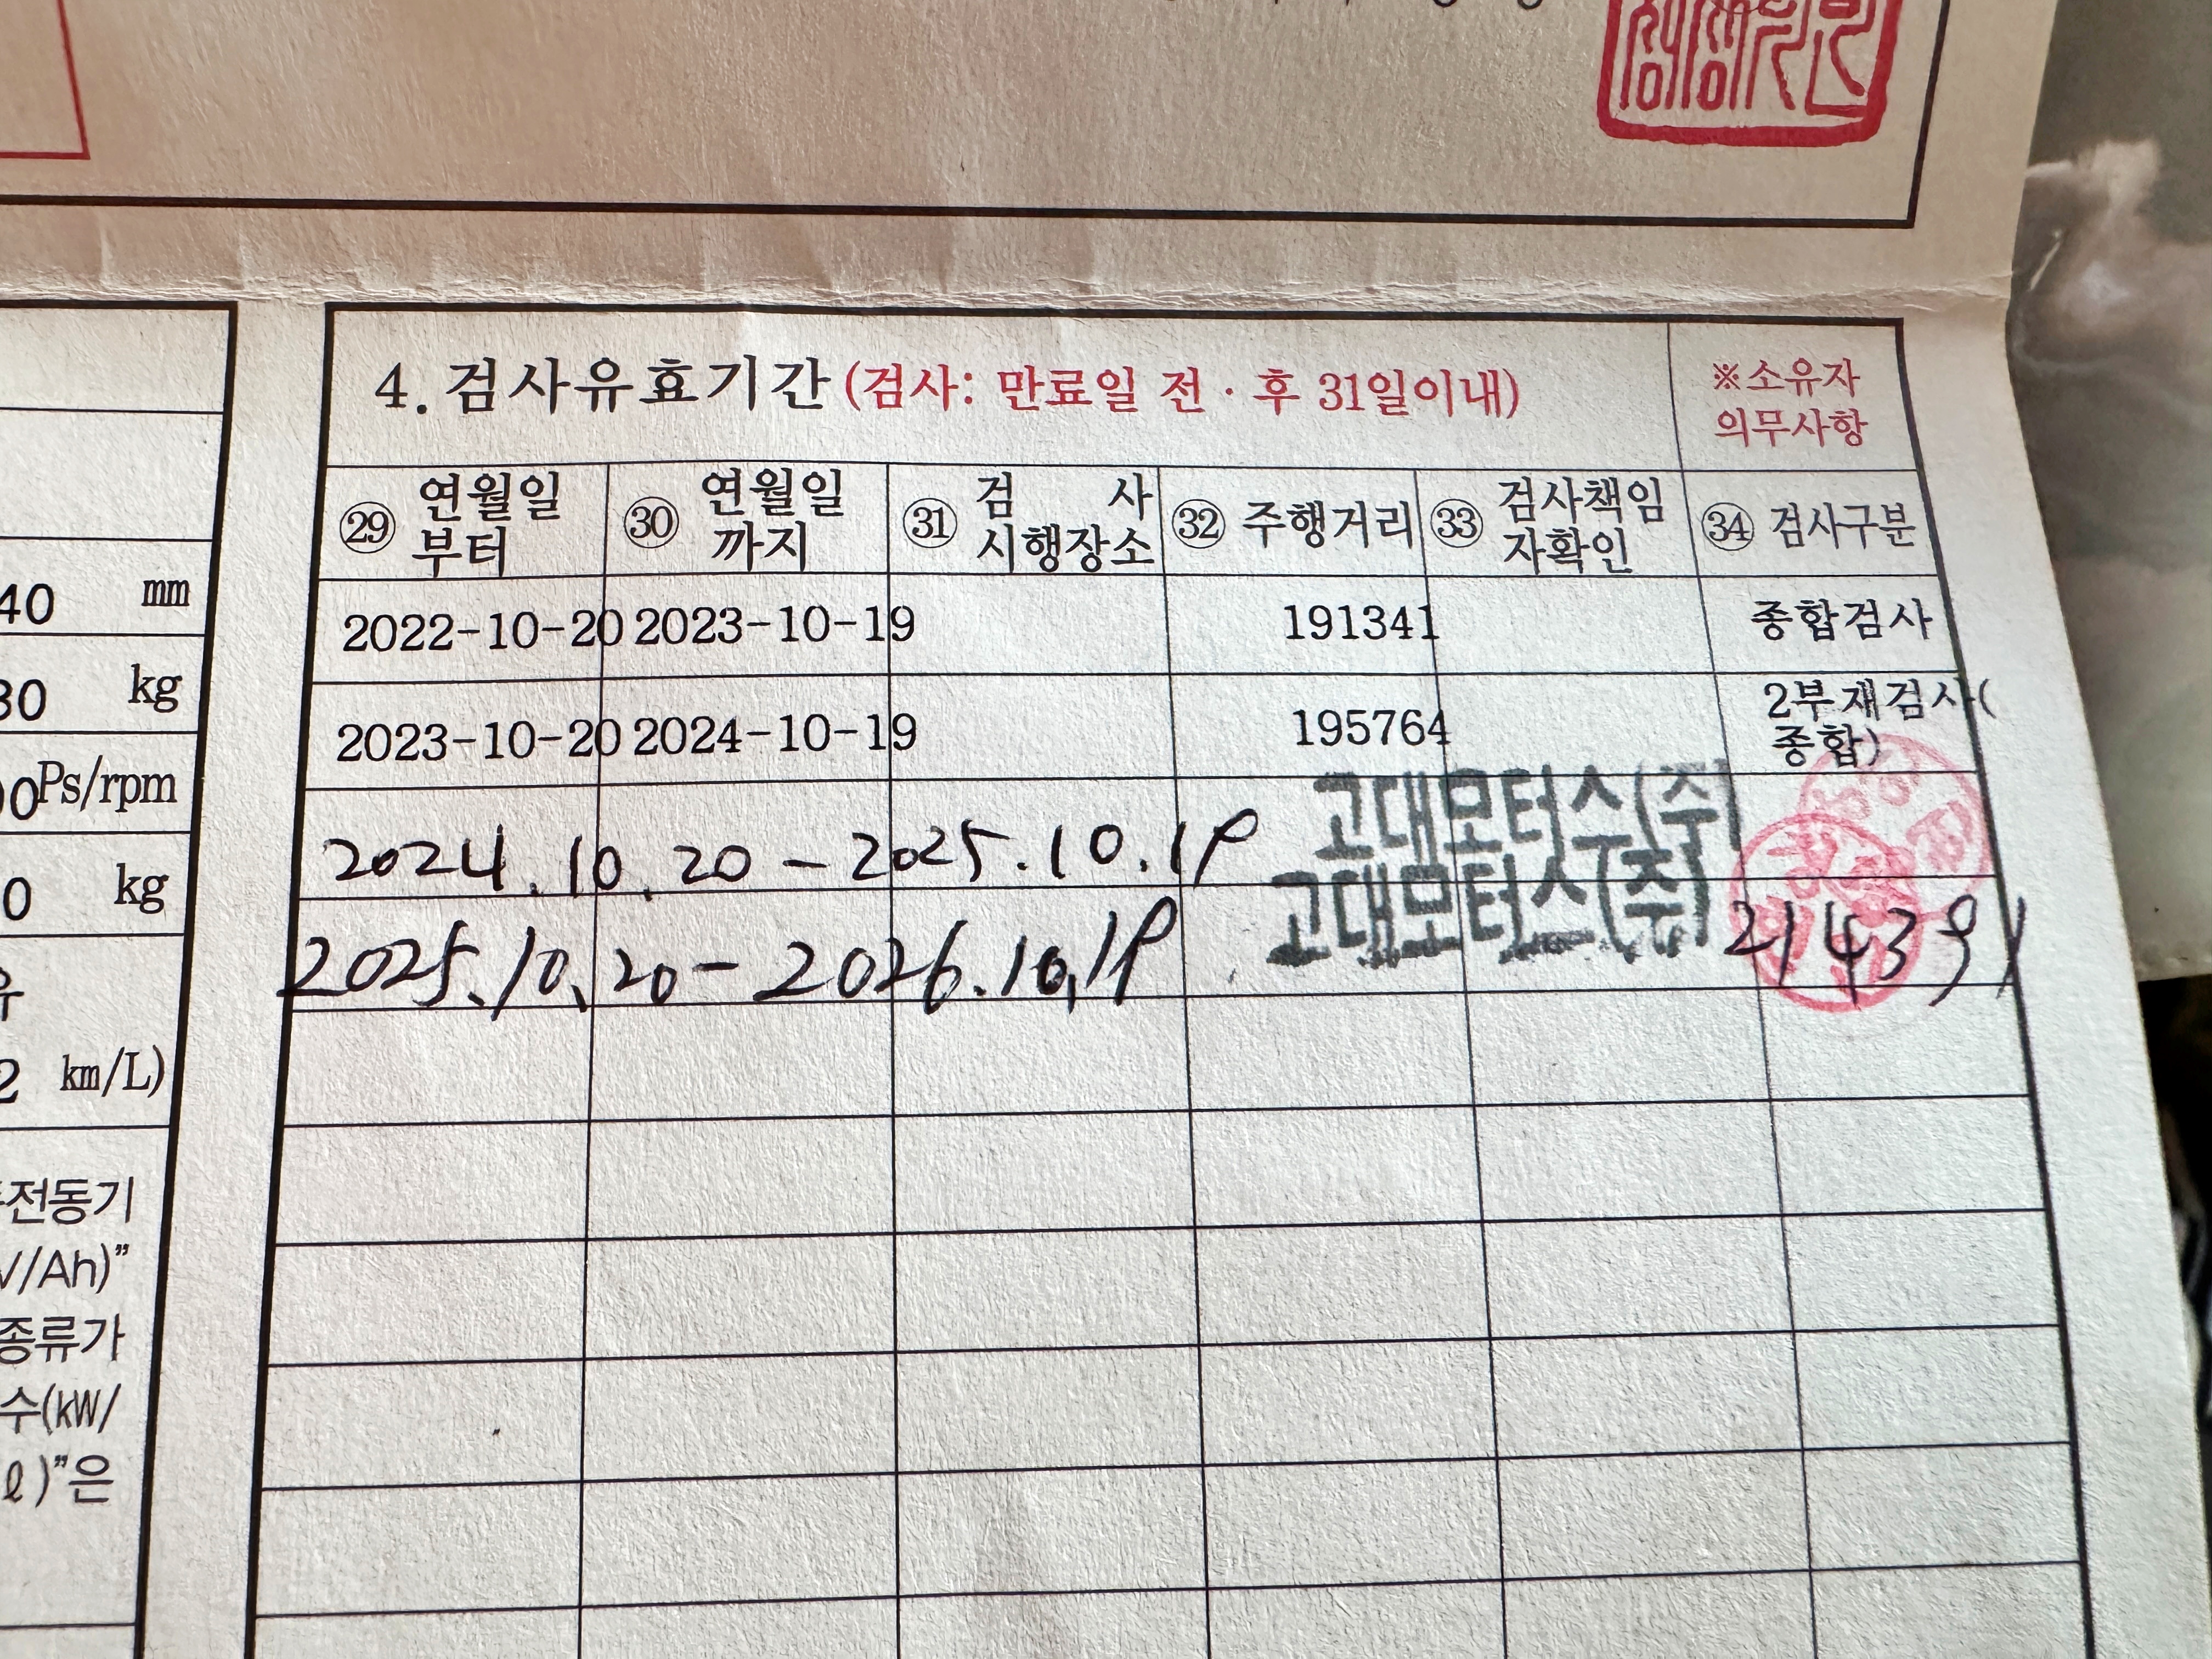 4. 검사유효기간 (검사: 만료일 전 · 후 31일이내) ※소유자 의무사항
㉙ 연월일 부터 ㉚ 연월일 까지 ㉛ 검 사 시행장소 ㉜ 주행거리 ㉝ 검사책임 자확인 ㉞ 검사구분
2022-10-20 2023-10-19 191341 종합검사
2023-10-20 2024-10-19 195764 2부재검사(종합)
2024.10.20 - 2025.10.19 고대모터스(주)
2025.10.20 - 2026.10.19 고대모터스(주) 214391
40 mm
30 kg
0Ps/rpm
0 kg
2 km/L)
전동기
V/Ah)”
종류가
수(kW/
ℓ)”은